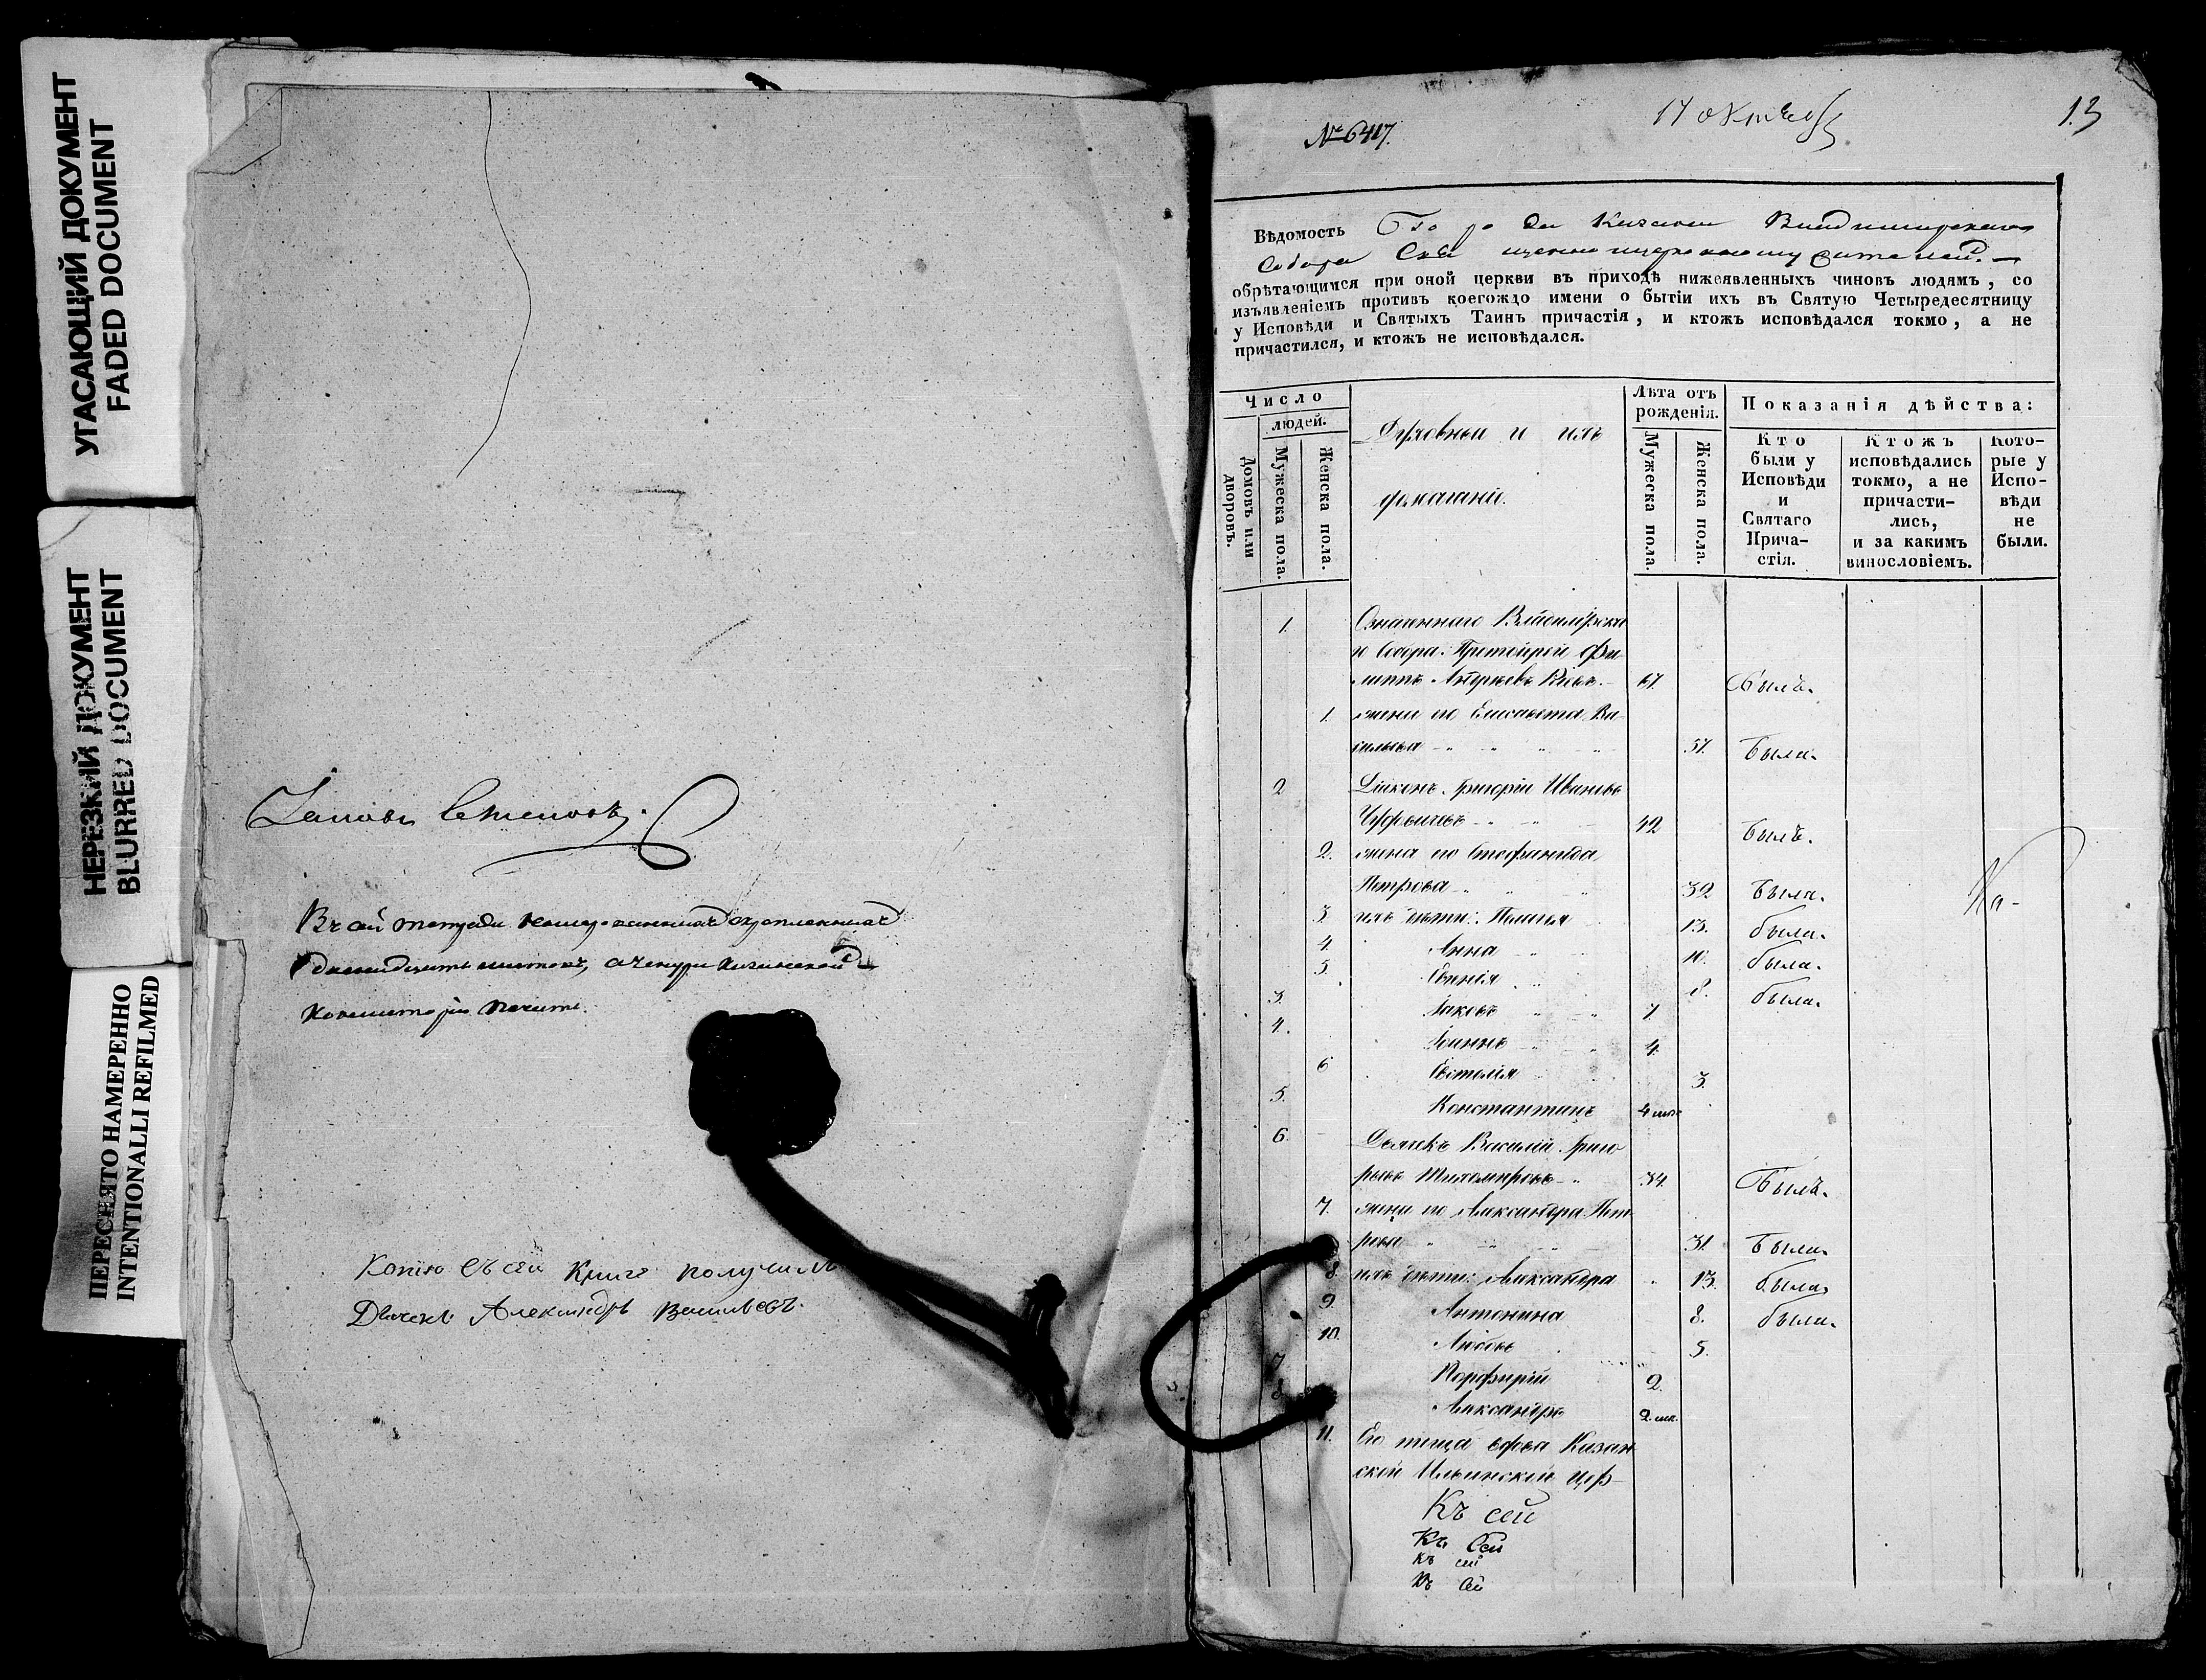 УГАСАЮЩИЙ ДОКУМЕНТ
FADED DOCUMENT
НЕРЕЗКИЙ ДОКУМЕНТ
BLURRED DOCUMENT
ПЕРЕСНЯТО НАМЕРЕННО
INTENTIONALLI REFILMED
Въ сей тетради
листовъ, а
печать.
Копію съ сей книги получилъ
Дьячекъ Александръ Васильевъ.
№ 6417.
17 октябр
13
Вѣдомость Города Казани Владимирскаго
Собора
обрѣтающимся при оной церкви въ приходѣ нижеявленныхъ чиновъ людямъ, со
изъявленіемъ противъ коегождо имени о бытіи ихъ въ Святую Четыредесятницу
у Исповѣди и Святыхъ Таинъ причастія, и ктожъ исповѣдался токмо, а не
причастился, и ктожъ не исповѣдался.
Число
людей.
Домовъ или дворовъ.
Мужеска пола.
Женска пола.
Духовныи и ихъ
домашніи.
Лѣта отъ
рожденія.
Мужеска пола.
Женска пола.
Показанія дѣйства:
Кто
были у
Исповѣди
и
Святаго
Прича-
стія.
Ктожъ
исповѣдались
токмо, а не
причасти-
лись,
и за какимъ
винословіемъ.
Кото-
рые у
Испо-
вѣди
не
были.
1. Означеннаго Владимірска
го Собора Протоіерей Фи
липпъ 67. Былъ.
1. жена его Елисавета Ва
сильева 57. Была.
2 Діаконъ Григорій Ивановъ
42 Былъ.
2. жена его Стефанида
Петрова 32 Была.
3. ихъ дѣти: Пелагія 13. была.
4. Анна 10. была.
5. Евгенія 8. была.
3. Іаковъ 7.
4. Іоаннъ 4.
6 3.
5. Константинъ 4 мѣс
6. Дьячекъ Василій Григо
рьевъ Тихомировъ 34. Былъ.
7. жена его Александра Пет
рова 31. Была.
8. ихъ дѣти: Александра 13. была.
9. Антонина 8. была.
10. Любовь 5.
7 Порфирій 2.
8 Александръ 2. мѣс.
11. Его теща вдова Казан
ской Ильинской цер-
Ка-
Къ сей
Къ Сей
Къ сей
Къ Сей